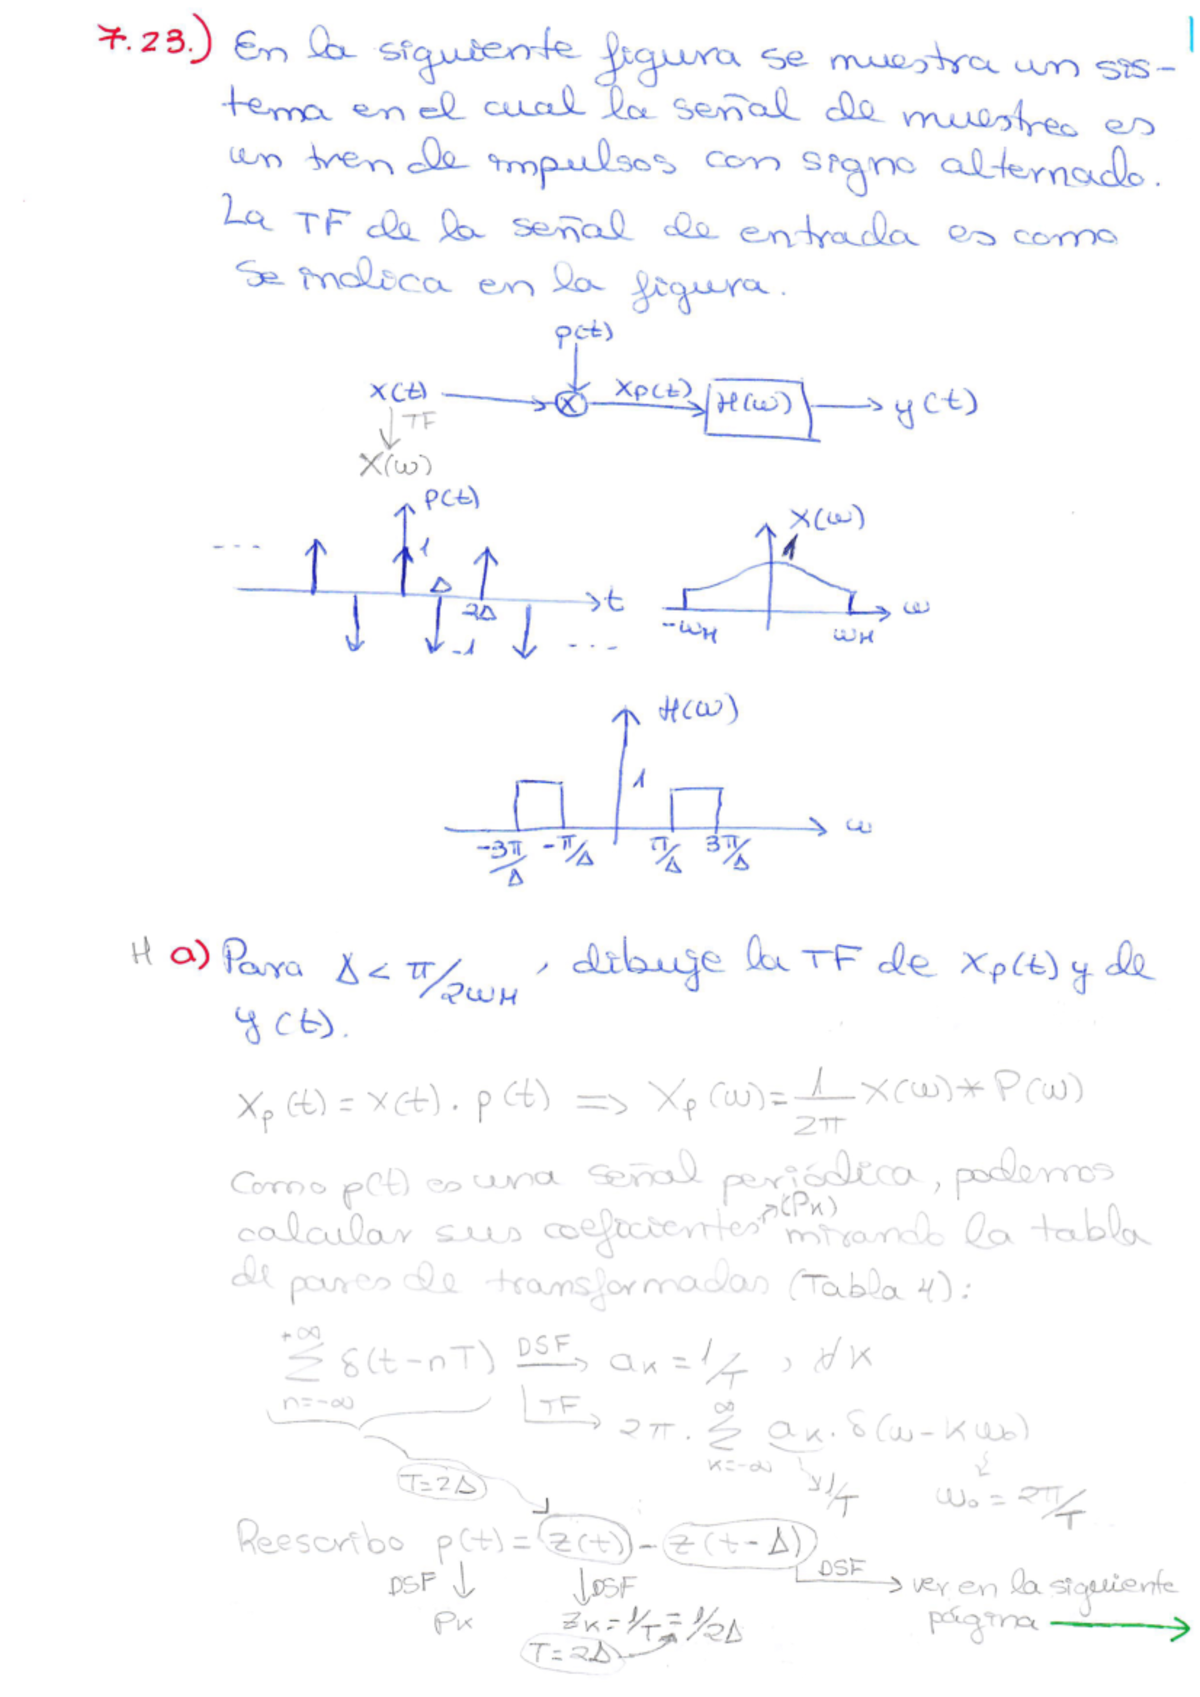 7.23.) En la siguiente figura se muestra un sis-
tema en el cual la señal de muestreo es
un tren de impulsos con signo alternado.
La TF de la señal de entrada es como
se indica en la figura.
p(t)
x(t) xp(t) H(ω) y(t)
TF
X(ω)
p(t)
X(ω)
--- 1 1
Δ 2Δ t
-1 ---
-ωH ωH ω
H(ω)
1
-3π/Δ -π/Δ π/Δ 3π/Δ ω
H a) Para Δ < π/2ωH, dibuje la TF de xp(t) y de
y(t).
xp(t) = x(t) . p(t) => Xp(ω) = 1/2π X(ω) * P(ω)
Como p(t) es una señal periódica, podemos
calcular sus coeficientes (Pk) mirando la tabla
de pares de transformadas (Tabla 4):
+∞ Σ n=-∞ δ(t-nT) DSF ak = 1/T , ∀k
TF 2π . ∞ Σ k=-∞ ak . δ(ω-kω0)
T=2Δ 1/T ω0 = 2π/T
Reescribo p(t) = z(t) - z(t-Δ)
DSF DSF DSF ver en la siguiente
Pk zk = 1/T = 1/2Δ página
T=2Δ